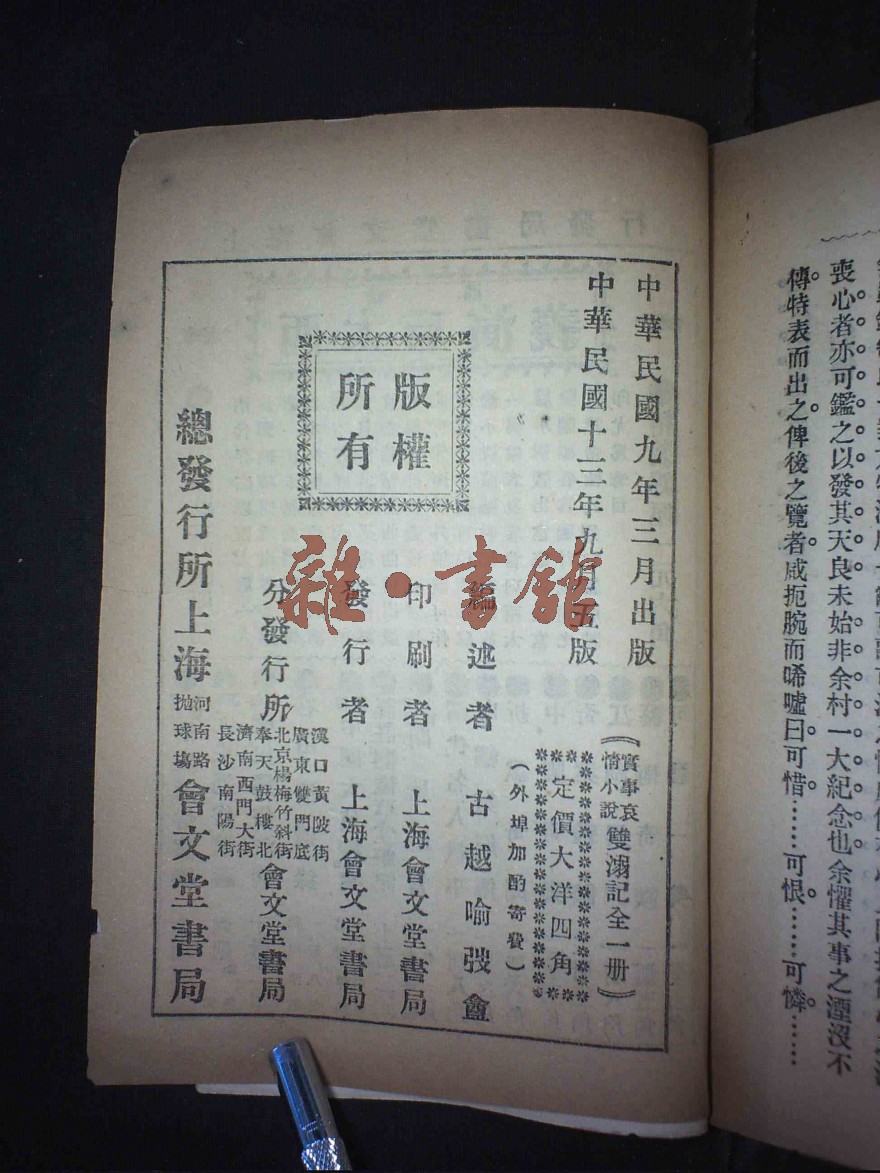 喪心者亦可鑑之以發其天良未始非余村一大紀念也余懼其事之湮沒不
傳特表而出之俾後之覽者咸扼腕而唏噓曰可惜……可恨……可憐……
中華民國九年三月出版
中華民國十三年九月五版
《實事哀情小說 雙溺記全一册》
定價大洋四角
（外埠加酌寄費）
編述者 古越喻弢盦
印刷者 上海會文堂書局
發行者 上海會文堂書局
分發行所
漢口黃陂街
廣東雙門底
北京楊梅竹斜街
奉天鼓樓北
濟南西門大街
長沙南陽街
會文堂書局
總發行所上海
河南路
拋球場
會文堂書局
版權
所有
雜·書館